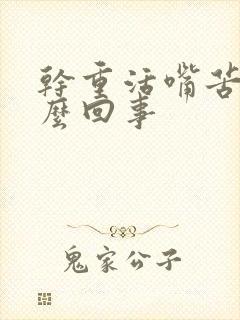 幹重活嘴苦
麼回事
鬼家公子